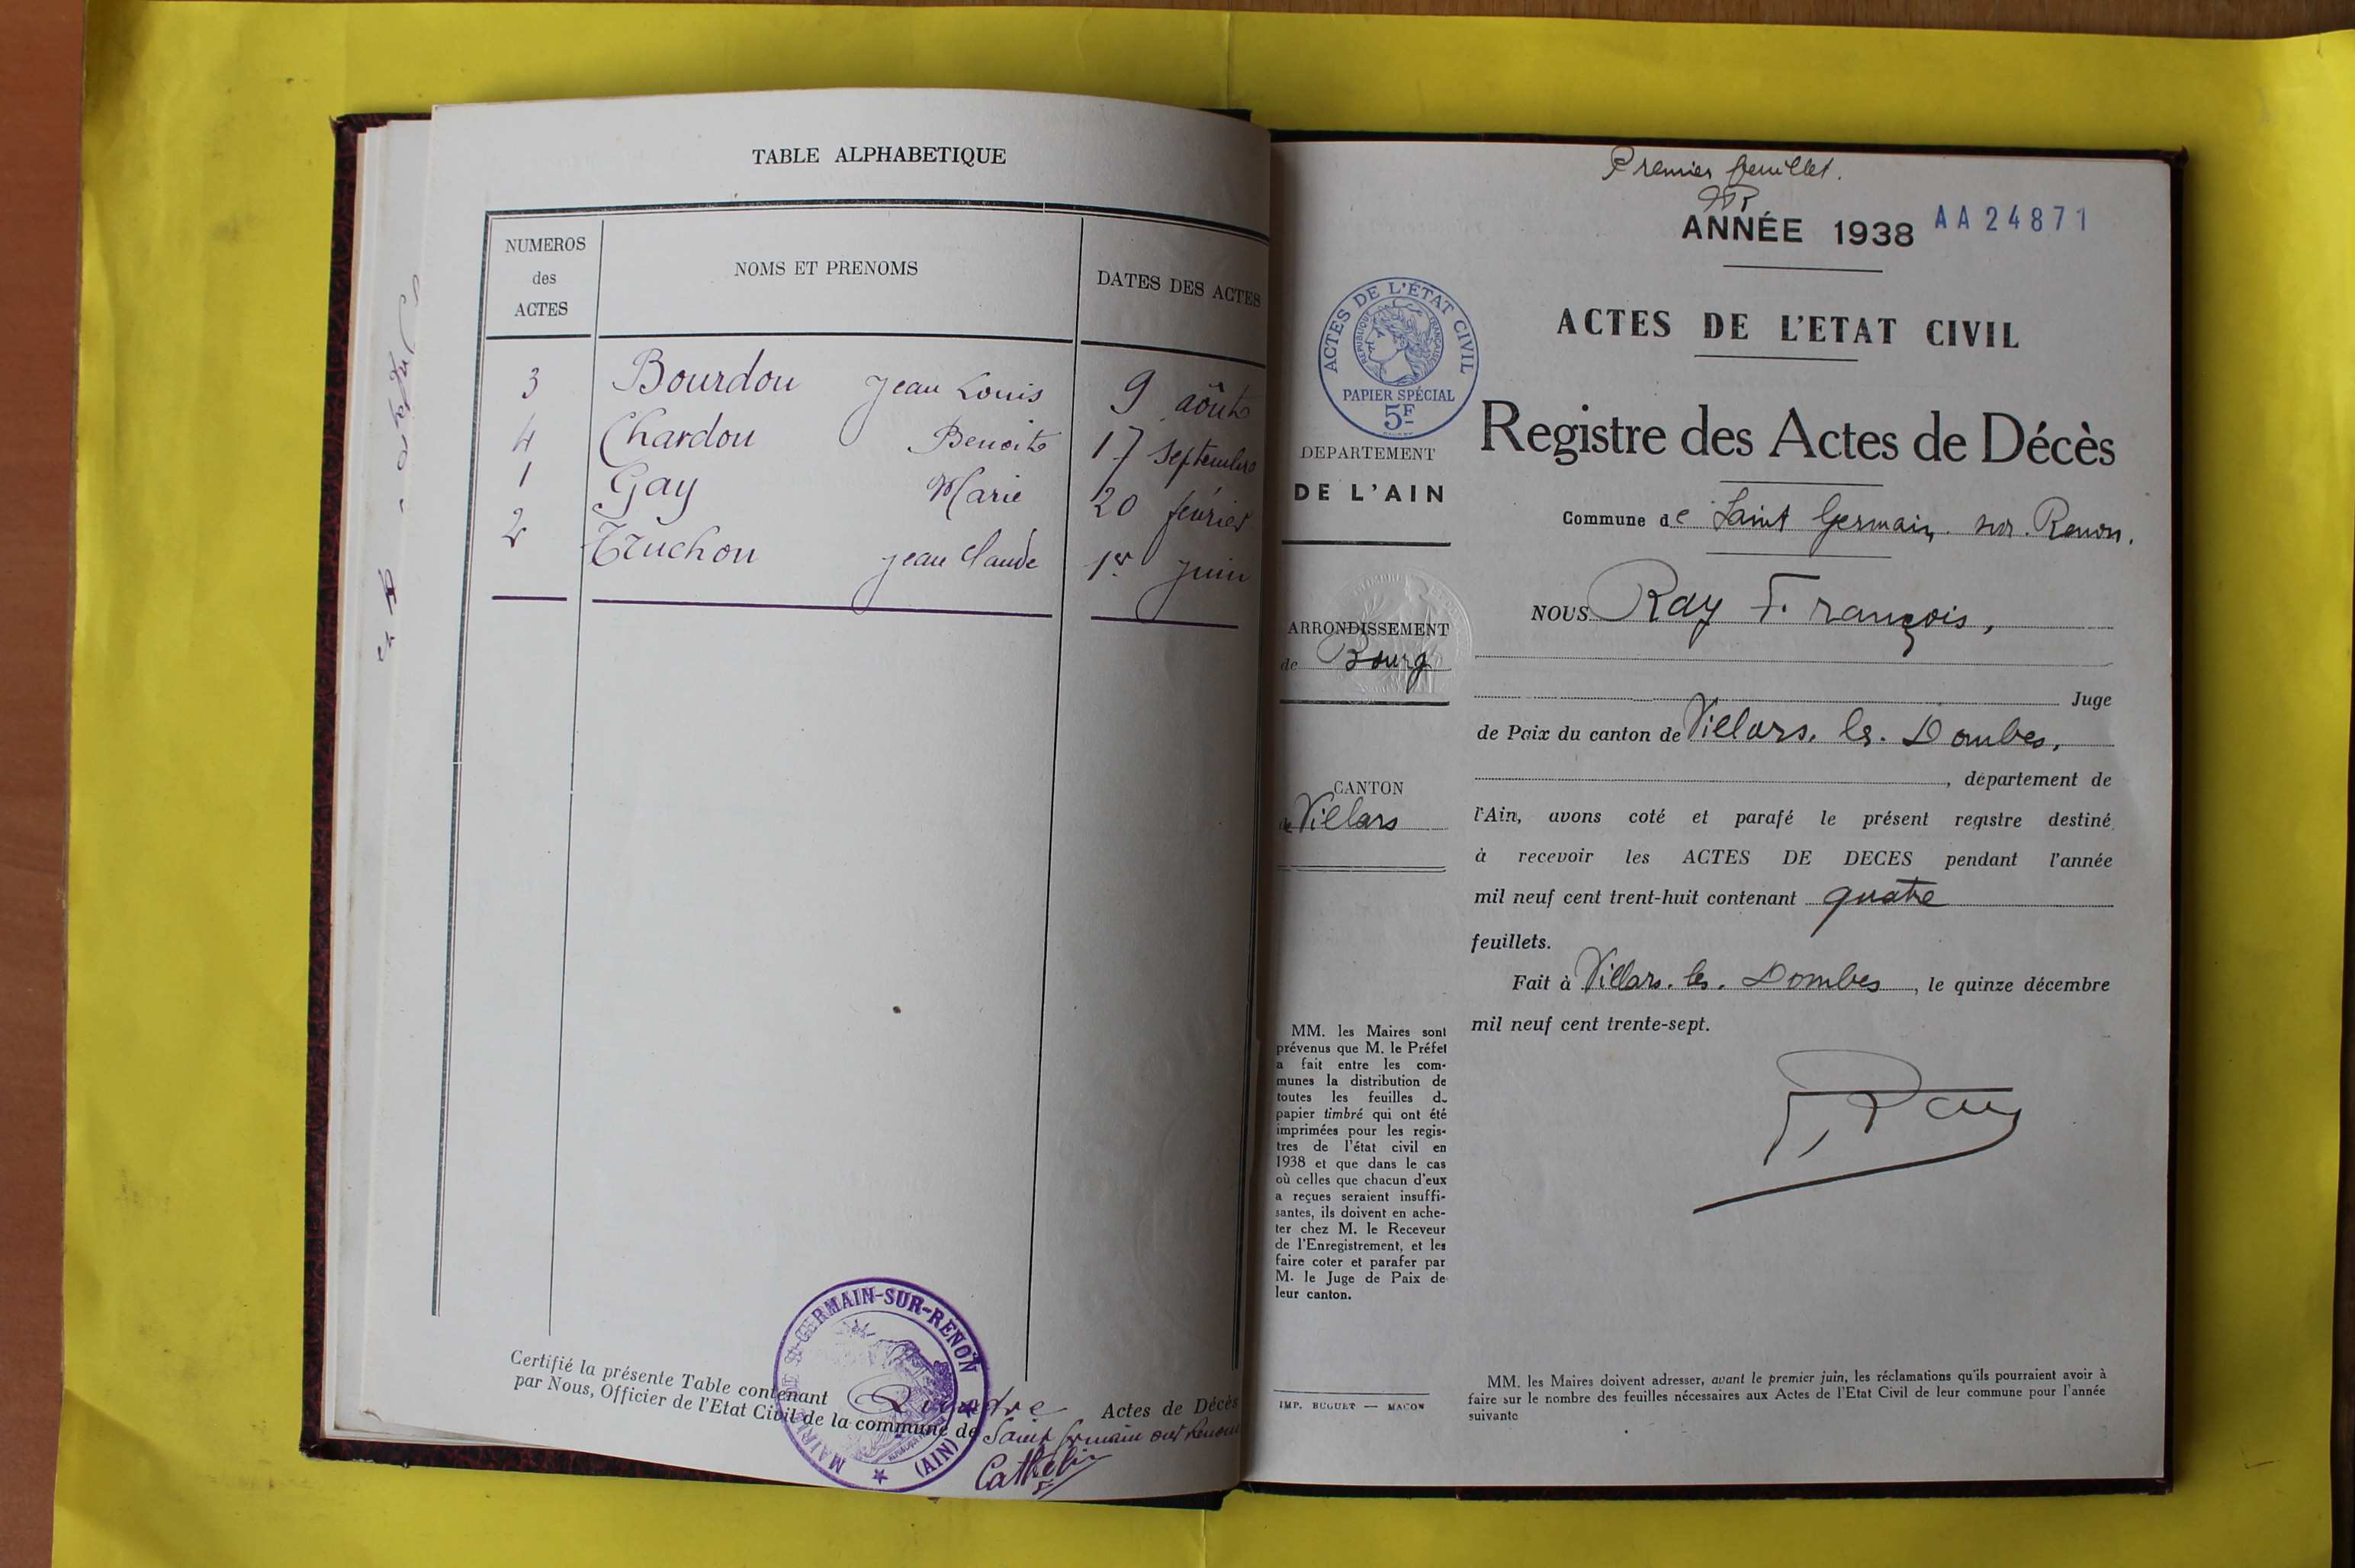 TABLE ALPHABETIQUE
NUMEROS des ACTES
NOMS ET PRENOMS
DATES DES ACTES
3 Bourdon Jean Louis 9 aôut
4 Chardon Benoite 17 Septembre
1 Gay Marie 20 février
2 Truchon Jean Claude 1er Juin
Certifié la présente Table contenant Quatre Actes de Décès
par Nous, Officier de l'Etat Civil de la commune de Saint Germain sur Renon
MAIRIE DE St-GERMAIN-SUR-RENON
(AIN)
Cathelin
Premier feuillet.
ANNÉE 1938 AA24871
ACTES DE L'ÉTAT CIVIL
RÉPUBLIQUE FRANÇAISE
PAPIER SPÉCIAL
5F
ACTES DE L'ETAT CIVIL
Registre des Actes de Décès
Commune de Saint Germain sur Renon.
DEPARTEMENT
DE L'AIN
ARRONDISSEMENT
de Bourg
CANTON
de Villars
NOUS Ray François,
Juge
de Paix du canton de Villars. les. Dombes,
, département de
l'Ain, avons coté et parafé le présent registre destiné
à recevoir les ACTES DE DECES pendant l'année
mil neuf cent trent-huit contenant quatre
feuillets.
Fait à Villars. les. Dombes, le quinze décembre
mil neuf cent trente-sept.
F. Ray
MM. les Maires sont
prévenus que M. le Préfet
a fait entre les com-
munes la distribution de
toutes les feuilles de
papier timbré qui ont été
imprimées pour les regis-
tres de l'état civil en
1938 et que dans le cas
où celles que chacun d'eux
a reçues seraient insuffi-
santes, ils doivent en ache-
ter chez M. le Receveur
de l'Enregistrement, et les
faire coter et parafer par
M. le Juge de Paix de
leur canton.
IMP. BUGUET — MACON
MM. les Maires doivent adresser, avant le premier juin, les réclamations qu'ils pourraient avoir à
faire sur le nombre des feuilles nécessaires aux Actes de l'Etat Civil de leur commune pour l'année
suivante